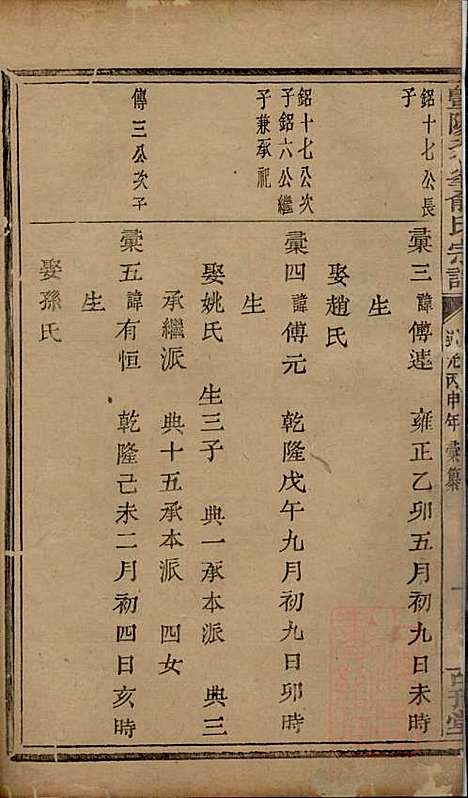 銘十七公長
子
彙三諱傅逵 雍正乙卯五月初九日未時
生
娶趙氏
銘十七公次
子銘六公繼
子兼承祀
彙四諱傅元 乾隆戊午九月初九日卯時
生
娶姚氏 生三子 典一承本派 典三
承繼派 典十五承本派 四女
傳三公次子
彙五諱有恒 乾隆己未二月初四日亥時
生
娶孫氏
暨陽 峯俞氏宗譜 元丙申年彙纂